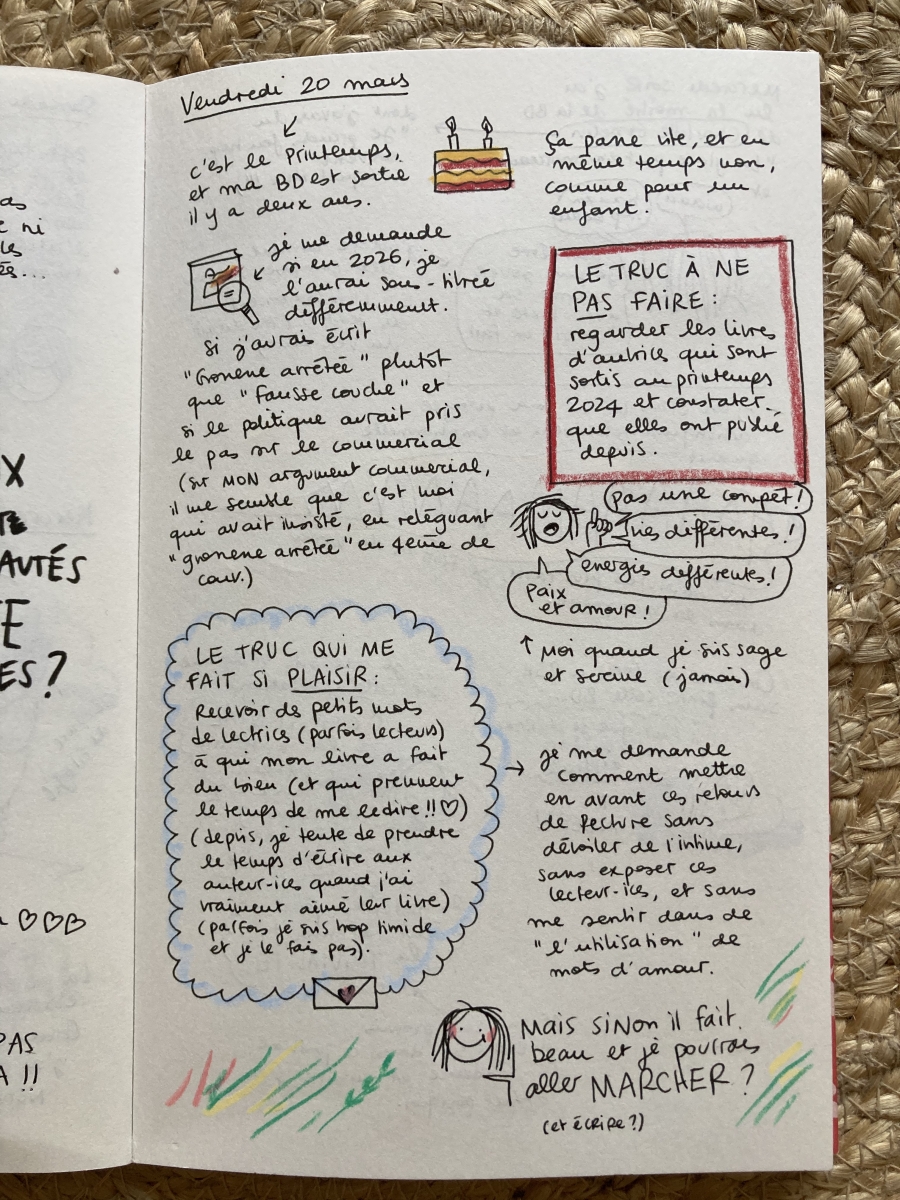 Vendredi 20 mars
c'est le Printemps,
et ma BD est sortie
il y a deux ans.
Ça passe vite, et en
même temps non,
comme pour un
enfant.
je me demande
si en 2026, je
l'aurai sous-titrée
différemment.
si j'avrais écrit
"Grossesse arrêtée" plutôt
que "fausse couche" et
si le politique aurait pris
le pas sur le commercial
(sur MON argument commercial,
il me semble que c'est moi
qui avait insisté, en reléguant
"grossesse arrêtée" en 4ème de
couv.)
LE TRUC À NE
PAS FAIRE :
regarder les livres
d'autrices qui sont
sortis au printemps
2024 et constater
que elles ont publié
depuis.
pas une compèt !
vies différentes !
énergies différentes !
Paix
et amour !
↑ Moi quand je suis sage
et sereine (jamais)
LE TRUC QUI ME
FAIT SI PLAISIR :
Recevoir des petits mots
de lectrices (parfois lecteurs)
à qui mon livre a fait
du bien (et qui prennent
le temps de me le dire !! ♡)
(depuis, je tente de prendre
le temps d'écrire aux
auteur-ices quand j'ai
vraiment aimé leur livre)
(parfois je suis trop timide
et je le fais pas).
→ je me demande
comment mettre
en avant ces retours
de lecture sans
dévoiler de l'intime,
sans exposer ces
lecteur-ices, et sans
me sentir dans de
"l'utilisation" de
mots d'amour.
Mais siNon il fait
beau et je pourrais
aller MARCHER ?
(et écrire ?)
AUTÉS
ES ?
♡♡♡
PAS
A !!